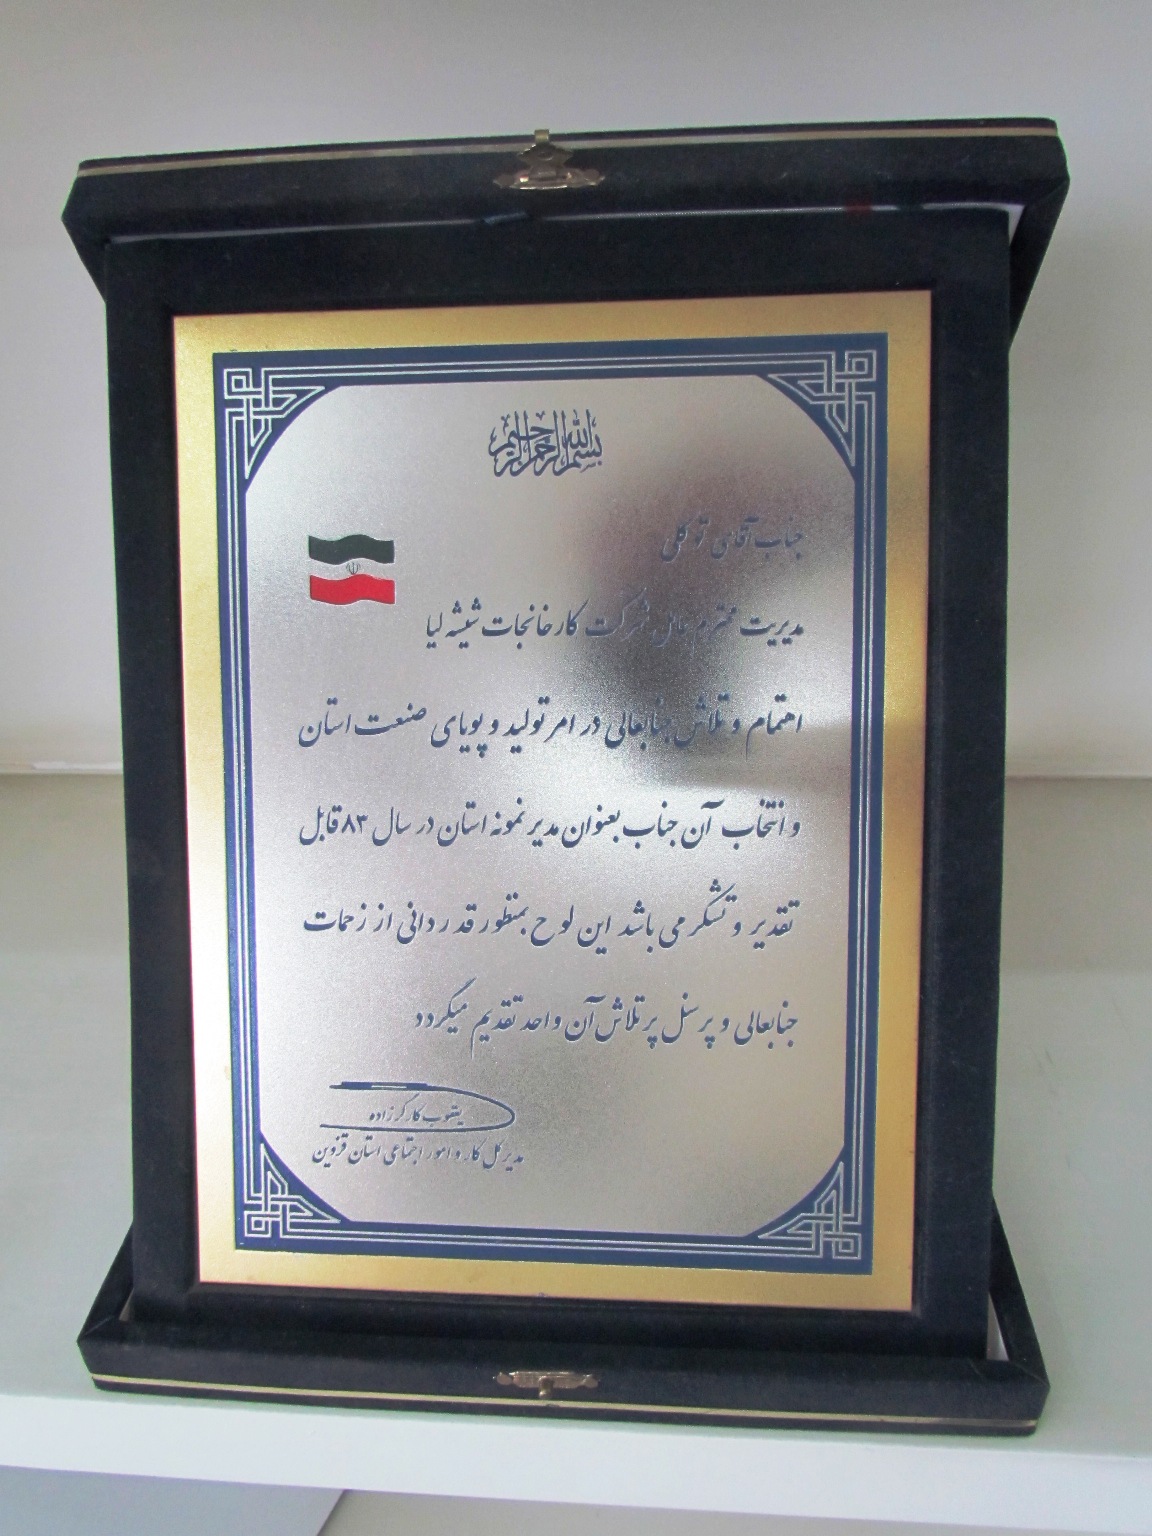 بسم الله الرحمن الرحیم
جناب آقای توکلی
مدیریت محترم عامل شرکت کارخانجات شیشه لیا
اهتمام و تلاش جنابعالی در امر تولید و پویای صنعت استان
و انتخاب آن جناب بعنوان مدیر نمونه استان در سال ۸۳ قابل
تقدیر و تشکر می باشد این لوح بمنظور قدردانی از زحمات
جنابعالی و پرسنل پرتلاش آن واحد تقدیم میگردد
یعقوب کارگرزاده
مدیرکل کار و امور اجتماعی استان قزوین